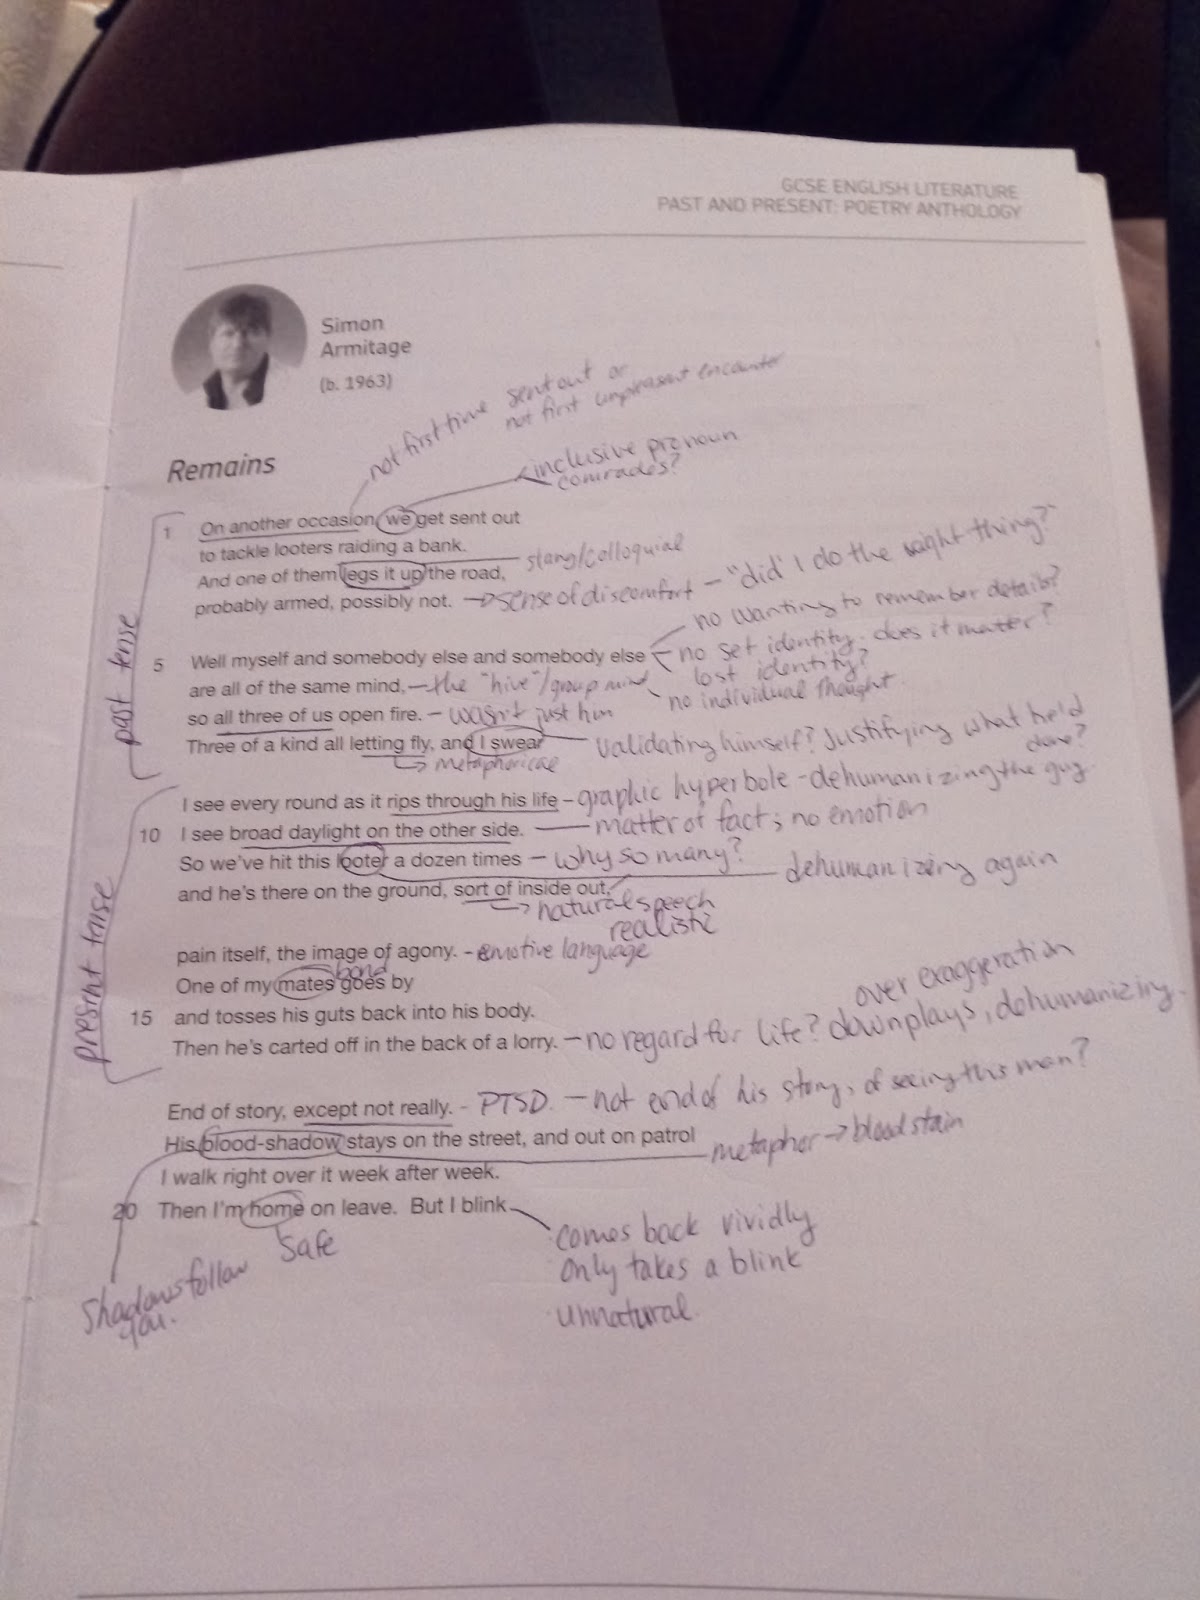 GCSE ENGLISH LITERATURE
PAST AND PRESENT: POETRY ANTHOLOGY
Simon
Armitage
(b. 1963)
not first time sent out or
not first unpleasant encounter
Remains
inclusive pronoun
comrades?
1 On another occasion we get sent out
to tackle looters raiding a bank.
slang/colloquial
And one of them legs it up the road,
probably armed, possibly not. → sense of discomfort - "did I do the right thing?"
no wanting to remember details?
5 Well myself and somebody else and somebody else no set identity. does it matter?
lost identity?
are all of the same mind, - the "hive"/group mind
no individual thought
so all three of us open fire. - wasn't just him
Three of a kind all letting fly, and I swear validating himself? Justifying what he'd
done?
→ metaphorical
past tense
I see every round as it rips through his life - graphic hyperbole - dehumanizing the guy
10 I see broad daylight on the other side. - matter of fact; no emotion
So we've hit this looter a dozen times - why so many?
dehumanizing again
and he's there on the ground, sort of inside out,
→ natural speech
realistic
pain itself, the image of agony. - emotive language
bond
One of my mates goes by
15 and tosses his guts back into his body.
over exaggeration
Then he's carted off in the back of a lorry. - no regard for life? downplays, dehumanizing.
present tense
End of story, except not really. - PTSD. - not end of his story, of seeing this man?
His blood-shadow stays on the street, and out on patrol
metaphor → bloodstain
I walk right over it week after week.
20 Then I'm home on leave. But I blink
Safe
comes back vividly
only takes a blink
unnatural.
Shadows follow
you.